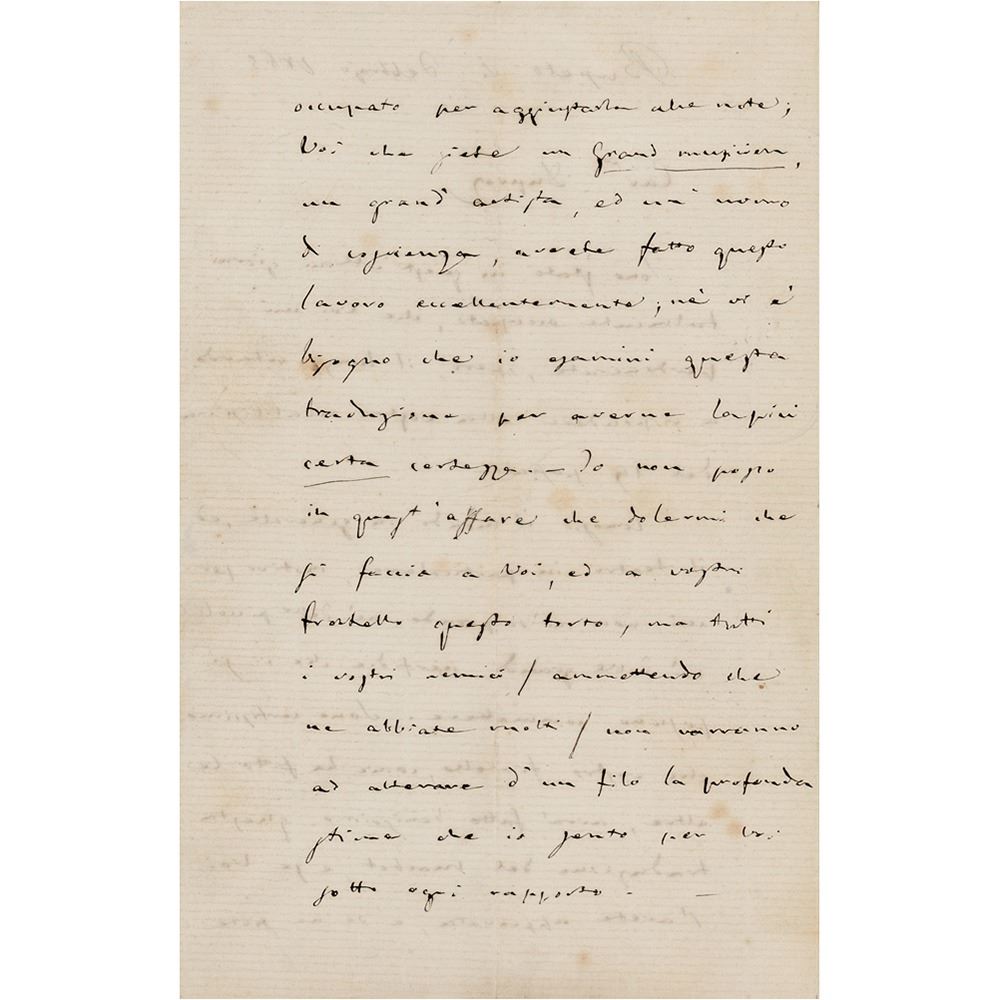 occupato per aggiustarla alle note;
Voi che siete un Grand musicien,
un grand'artista, ed un uomo
di coscienza, avrete fatto questo
lavoro eccellentemente; nè vi è
bisogno che io esamini questa
traduzione per averne la più
certa certezza. – Io non posso
in quest'affare che dolermi che
si faccia a Voi, ed a vostro
fratello questo torto, ma tutti
i vostri nemici / ammettendo che
ne abbiate molti / non varranno
ad alterare d'un filo la profonda
stima che io sento per Voi
sotto ogni rapporto –